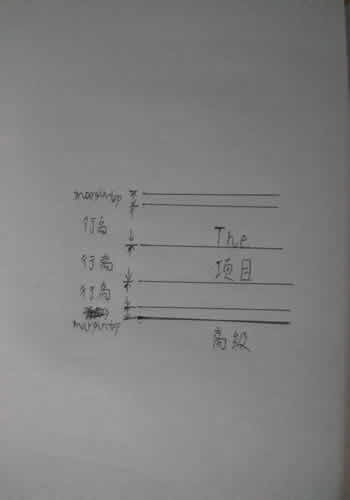 margintop
行高
The
行高
项目
行高
margintop
高级